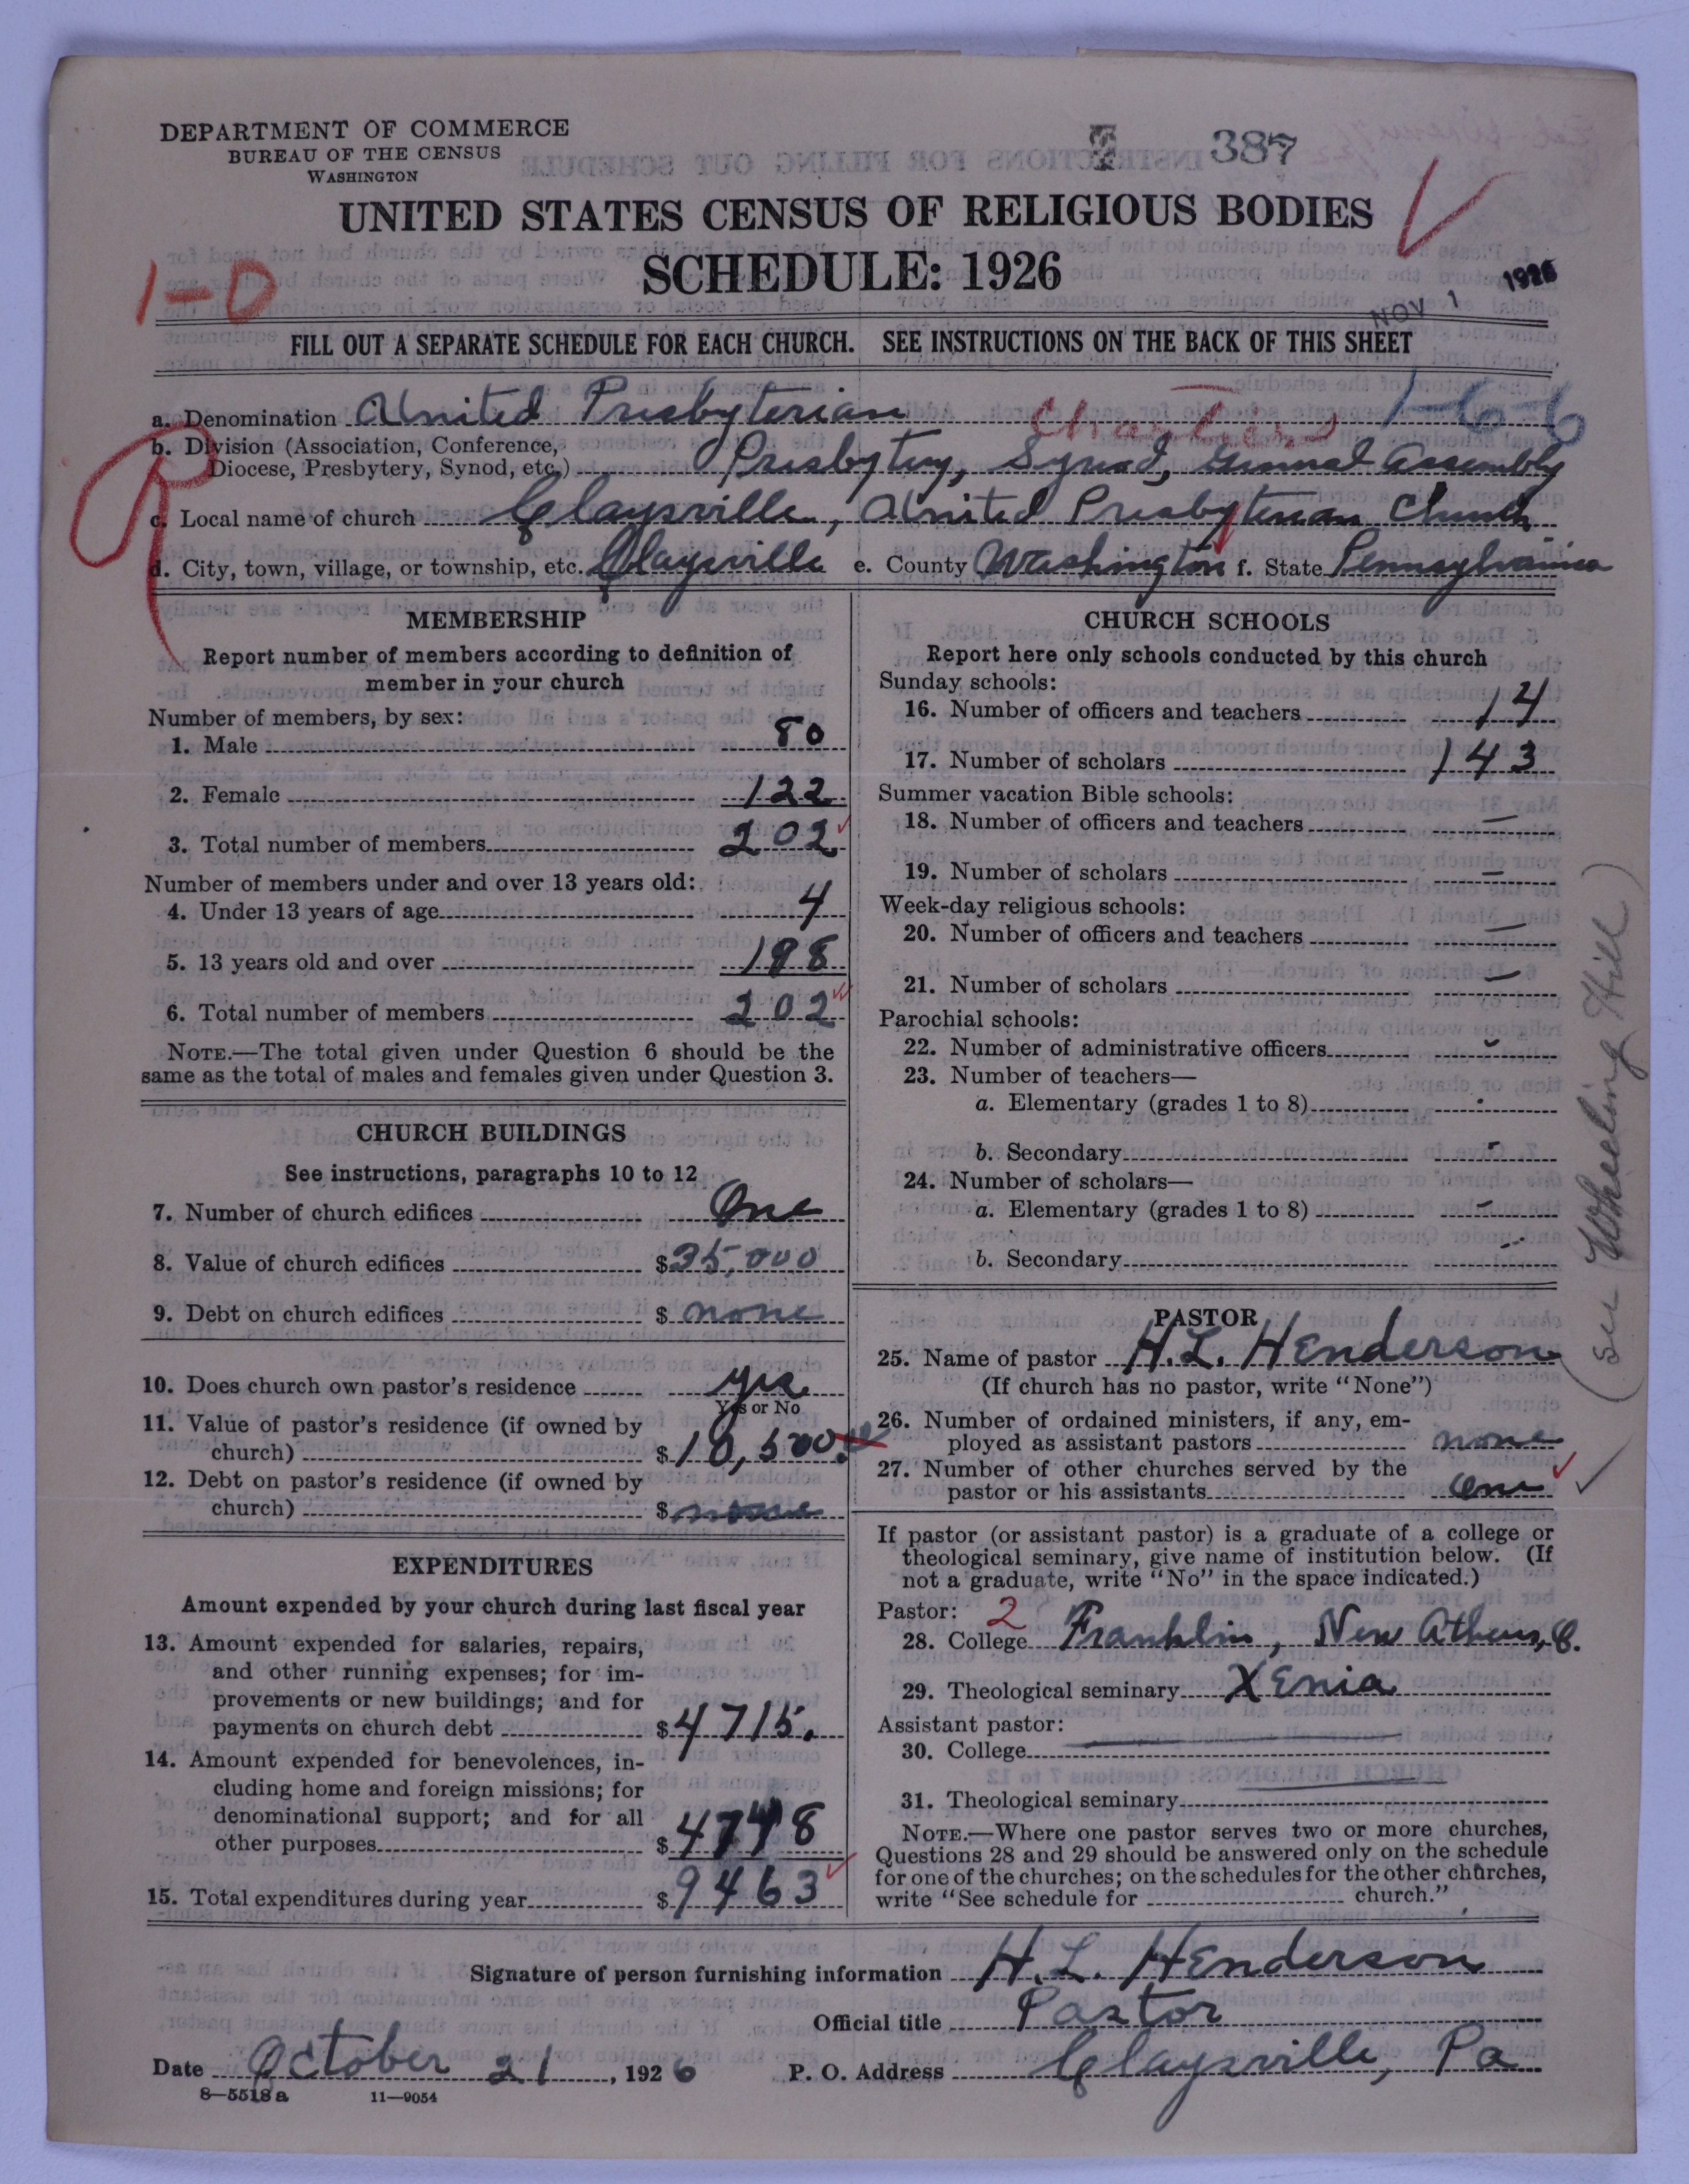 DEPARTMENT OF COMMERCE
BUREAU OF THE CENSUS
WASHINGTON
387
UNITED STATES CENSUS OF RELIGIOUS BODIES
SCHEDULE: 1926
1-0
NOV 1 1926
FILL OUT A SEPARATE SCHEDULE FOR EACH CHURCH. SEE INSTRUCTIONS ON THE BACK OF THIS SHEET
a. Denomination United Presbyterian Chartiers 1-6-6
b. Division (Association, Conference,
Diocese, Presbytery, Synod, etc.) Presbytery, Synod, General Assembly
c. Local name of church Claysville, United Presbyterian Church
d. City, town, village, or township, etc. Claysville e. County Washington f. State Pennsylvania
MEMBERSHIP
Report number of members according to definition of
member in your church
Number of members, by sex:
1. Male 80
2. Female 122
3. Total number of members 202
Number of members under and over 13 years old:
4. Under 13 years of age 4
5. 13 years old and over 198
6. Total number of members 202
NOTE.—The total given under Question 6 should be the
same as the total of males and females given under Question 3.
CHURCH BUILDINGS
See instructions, paragraphs 10 to 12
7. Number of church edifices One
8. Value of church edifices $35,000
9. Debt on church edifices $ none
10. Does church own pastor's residence yes
Yes or No
11. Value of pastor's residence (if owned by
church) $10,500.
12. Debt on pastor's residence (if owned by
church) $ none
EXPENDITURES
Amount expended by your church during last fiscal year
13. Amount expended for salaries, repairs,
and other running expenses; for im-
provements or new buildings; and for
payments on church debt $4715.
14. Amount expended for benevolences, in-
cluding home and foreign missions; for
denominational support; and for all
other purposes $4748
15. Total expenditures during year $9463
CHURCH SCHOOLS
Report here only schools conducted by this church
Sunday schools:
16. Number of officers and teachers 14
17. Number of scholars 143
Summer vacation Bible schools:
18. Number of officers and teachers —
19. Number of scholars —
Week-day religious schools:
20. Number of officers and teachers —
21. Number of scholars —
Parochial schools:
22. Number of administrative officers -
23. Number of teachers—
a. Elementary (grades 1 to 8) -
b. Secondary -
24. Number of scholars—
a. Elementary (grades 1 to 8) -
b. Secondary -
PASTOR
25. Name of pastor H.L. Henderson
(If church has no pastor, write "None")
26. Number of ordained ministers, if any, em-
ployed as assistant pastors none
27. Number of other churches served by the
pastor or his assistants One
(See Wheeling Hill)
If pastor (or assistant pastor) is a graduate of a college or
theological seminary, give name of institution below. (If
not a graduate, write "No" in the space indicated.)
Pastor: 2
28. College Franklin, New Athens, O.
29. Theological seminary Xenia
Assistant pastor:
30. College
31. Theological seminary
NOTE.—Where one pastor serves two or more churches,
Questions 28 and 29 should be answered only on the schedule
for one of the churches; on the schedules for the other churches,
write "See schedule for church."
Signature of person furnishing information H.L. Henderson
Official title Pastor
Date October 21, 1926 P. O. Address Claysville, Pa
8-5518a 11-9054